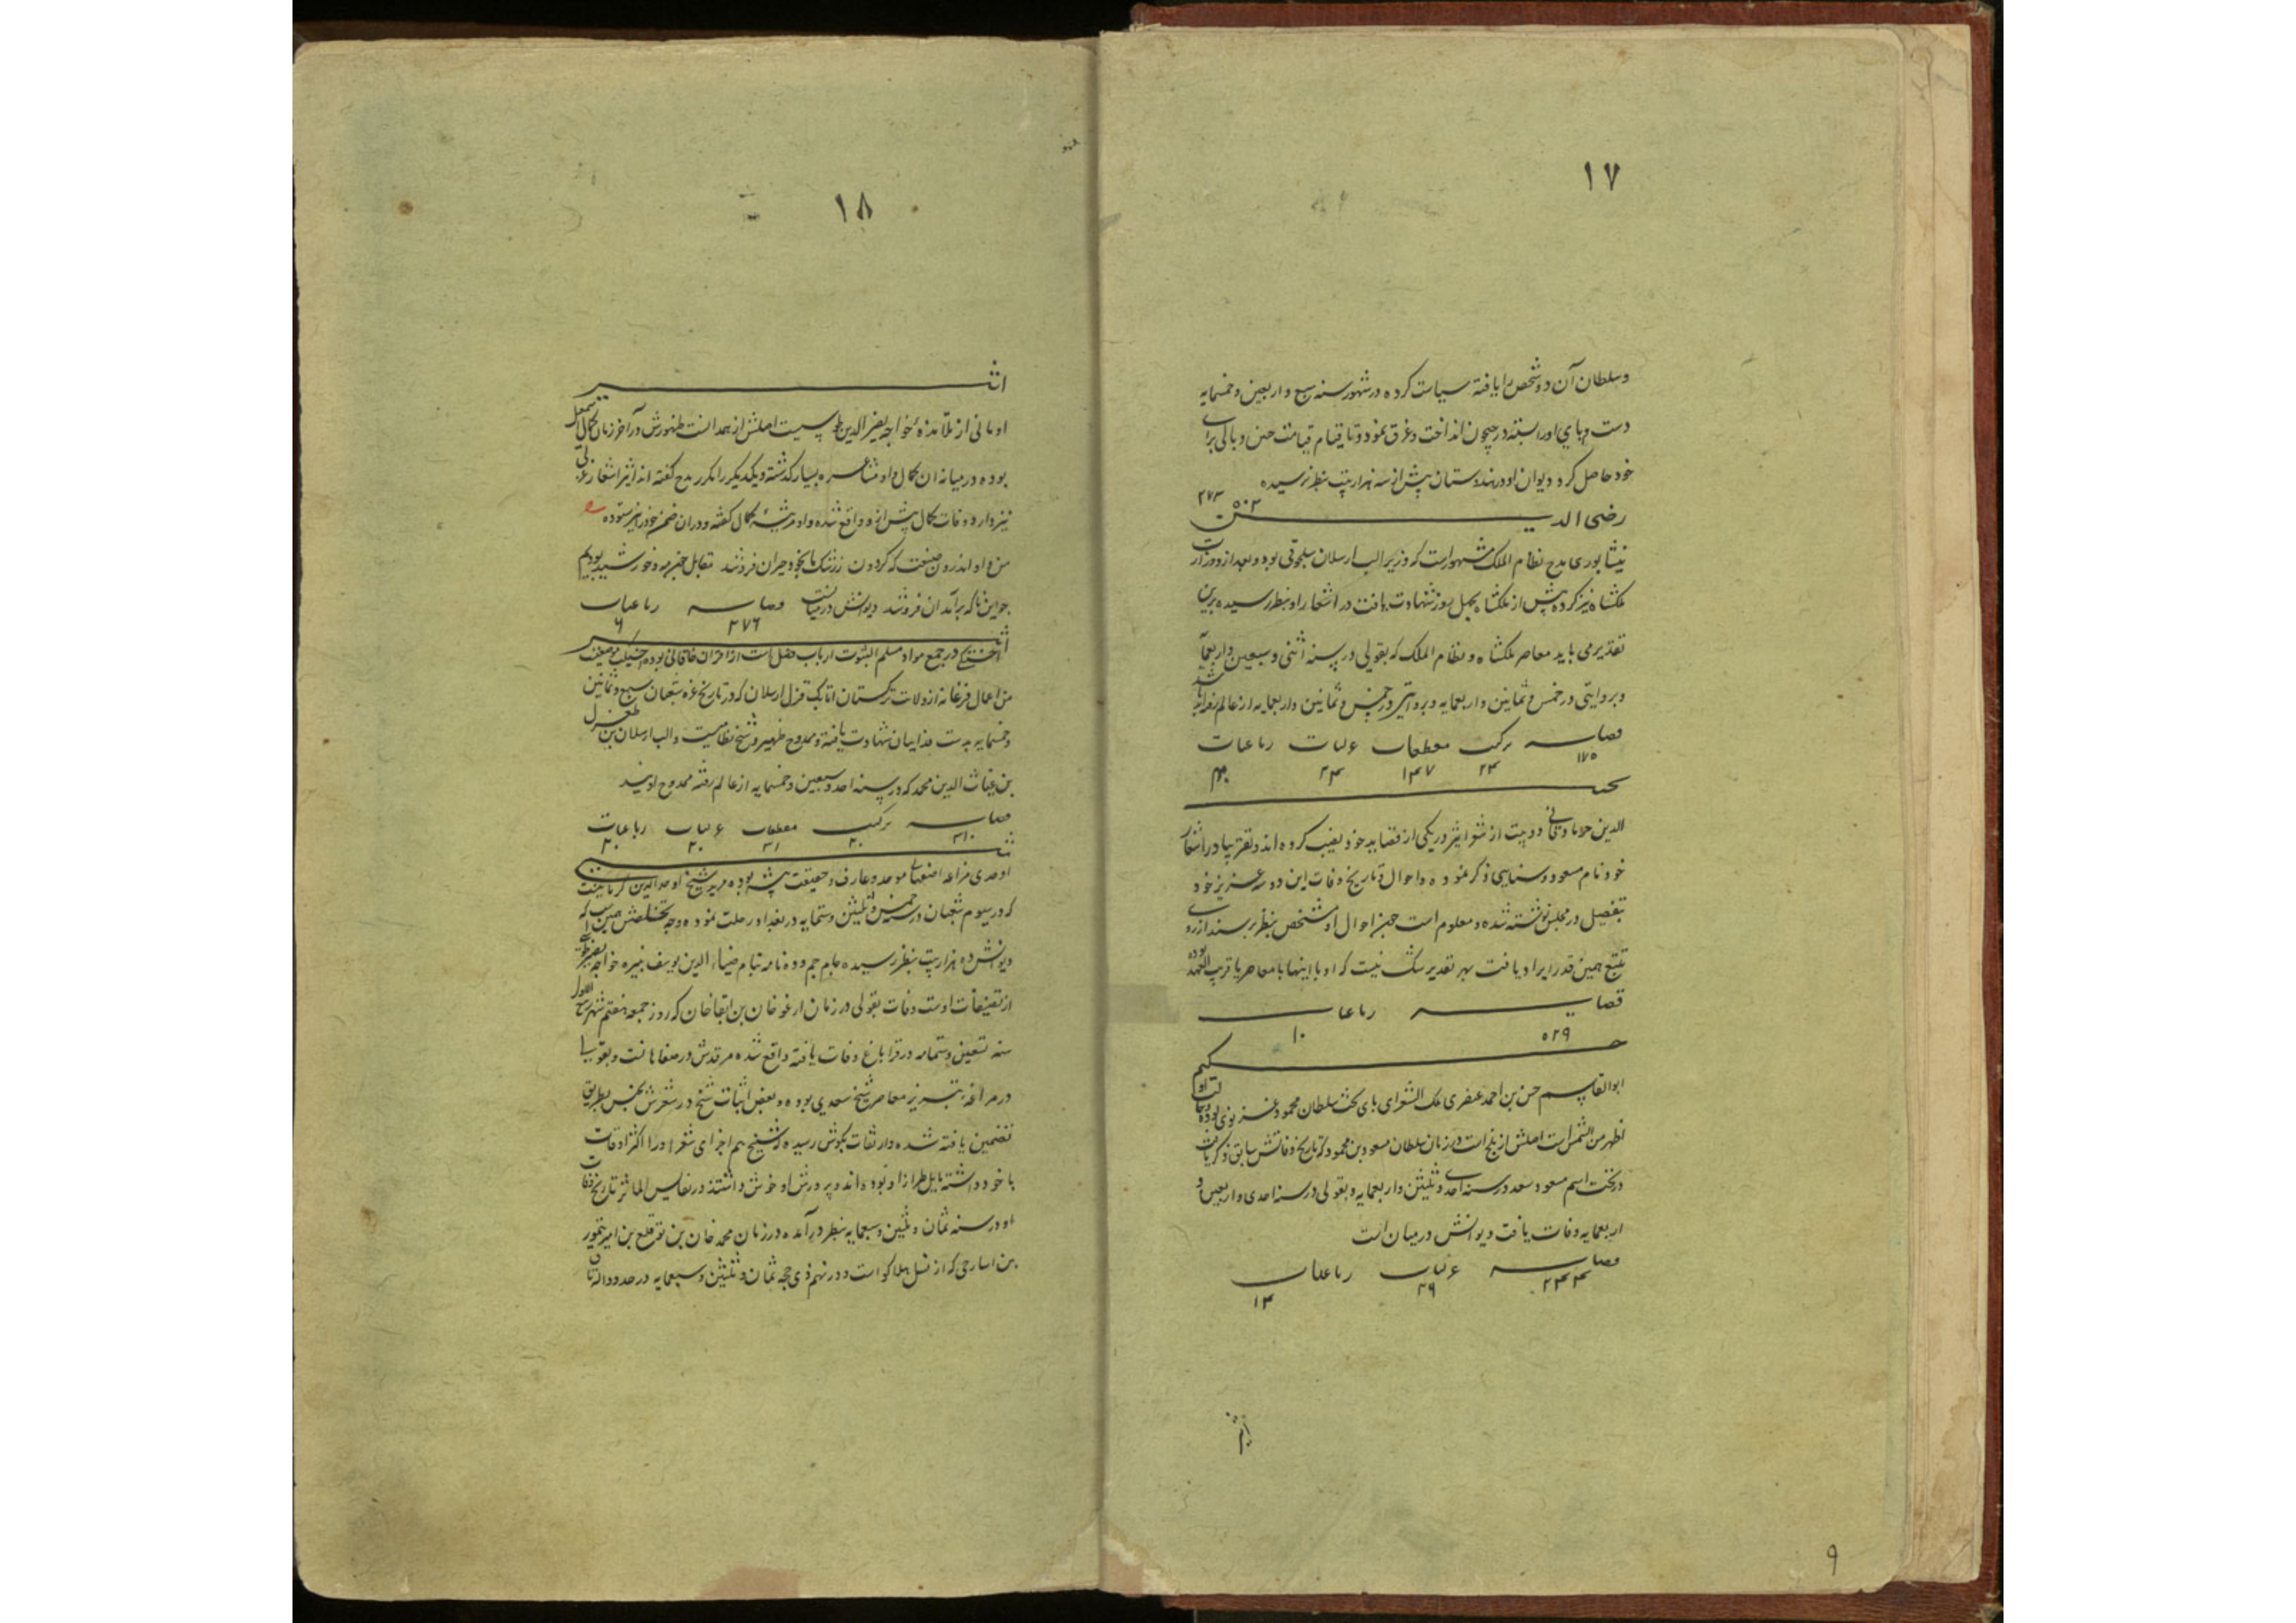 ١٧
وسلطان آن دو شخص را یافته سیاست کرده در شهور سنه سبع و اربعین و خمسمایه
دست و پای او را بسته در جیحون انداخت و غرق نمود و تا قیام قیامت حزن و بالی برای
خود حاصل کرد دیوان او در هندوستان پیش از سه هزار بیت بنظر نرسیده
رضی الدین
نیشابوری مدح نظام الملک مشهور است که وزیر الب ارسلان سلجوقی بود و بعد از و وزارت
ملکشاه نیز کرده پیش از ملکشاه بچهل روز شهادت یافت در اشعار او بنظر رسیده برین
تقدیر می باید معاصر ملکشاه و نظام الملک که بقولی در سنه اثنی و سبعین و اربعمایه
و بروایتی در خمس و ثمانین و اربعمایه و بروایتی در خمس و ثمانین و اربعمایه از عالم رفته اند باشد
قصاید ترکیب مقطعات غزلیات رباعیات
١٧٥ ٢٣ ١٣٧ ٢٣
الدین دو بیت از شعر اثیر در یکی از قصاید خود نصب کرده اند و تقریبا در اشعار
خود نام مسعود و سنایی ذکر نموده و احوال و تاریخ وفات این دو سه عزیز خود
بتفصیل در مجلس نوشته شده و معلوم است چیز احوال او مشخص بنظر نرسید از روی
تتبع همین قدر ایراد یافت بهر تقدیر شک نیست که او با اینها یا معاصر یا قریب العهد بوده
قصاید رباعیات
٥٢٩ ١٠
حکیم
ابو القاسم حسن بن احمد عنصری ملک الشعرای پای تخت سلطان محمود غزنوی بوده و حالت او
اظهر من الشمس است اصلش از بلخ است در زمان سلطان مسعود بن محمود که تاریخ وفاتش سابق ذکر یافت
در تحت اسم مسعود سعد در سنه احدی و ثلثین و اربعمایه و بقولی در سنه احدی و اربعین و
اربعمایه وفات یافت دیوانش در میان است
قصاید غزلیات رباعیات
٢٣٣ ٢٩ ١٣
٩
١٨
اثیر
اومانی از تلامذه خواجه نصیر الدین طوسیست اصلش از همدانست ظهورش در آخر زمان کمال اسمعیل
بوده در میانه ان کمال و او مشاعره بسیار گذشته و یکدیگر را مکرر مدح گفته اند اثیر اشعار عربی
نیز دارد وفات کمال پیش از و واقع شده و او مرثیه کمال گفته و در ان ضمن خود را نیز ستوده
من و او اندرون صنعت که گردون ز رشک ما بخود حیران فروشد مقابل چون مه و خورشید بودیم
چو این ناگه برآمد ان فروشد دیوانش در میانست قصاید رباعیات
٢٧٦ ٦
اثیر
اخسیکتی در جمع مواد مسلم الثبوت ارباب فضل است از اقران خاقانی بوده اخسیکت موضعیست
من اعمال فرغانه از ولات ترکستان اتابک قزل ارسلان که در تاریخ غره شعبان سبع و ثمانین
و خمسمایه بدست فداییان شهادت یافته و ممدوح ظهیر و شیخ نظامیست و الب ارسلان بن طغرل
بن غیاث الدین محمد که در سنه احد و سبعین و خمسمایه از عالم رفته ممدوح اویند
قصاید ترکیب مقطعات غزلیات رباعیات
٣١٠ ٢٠ ٣١ ٢٠ ٢٠
شیخ
اوحدی مراغه اصفهانی موحد و عارف و حقیقت پیشه بوده مرید شیخ اوحد الدین کرمانیست
که در سیوم شعبان در سنه خمس و ثلثین و ستمایه در بغداد رحلت نموده وجه تخلصش همین است که
دیوانش ده هزار بیت بنظر رسیده جام جم و ده نامه بنام ضیاء الدین یوسف نبیره خواجه نصیر طوسی
از تصنیفات اوست وفات بقولی در زمان ارغون خان بن ابقا خان که روز جمعه هفتم شهر ربیع الاول
سنه تسعین و ستمایه در قراباغ وفات یافته واقع شده مرقدش در صفاهانست و بقولی
در مراغه تبریز معاصر شیخ سعدی بوده و بعضی ابیات شیخ در شعرش بجنس بطریق
تضمین یافته شده و از ثقات بگوش رسیده که شیخ هم اجزای شعر او را اکثر اوقات
با خود داشته مایل طرز او بوده اند و پرورش او خوش داشتند در نفایس الماثر تاریخ وفات
او در سنه ثمان و ثلثین و سبعمایه بنظر درآمده در زمان محمد خان بن قتلغ بن امیر تیمور
بن انبارجی که از نسل هلاکو است و در نهم ذی حجه ثمان و ثلثین و سبعمایه در حدود الاتاق